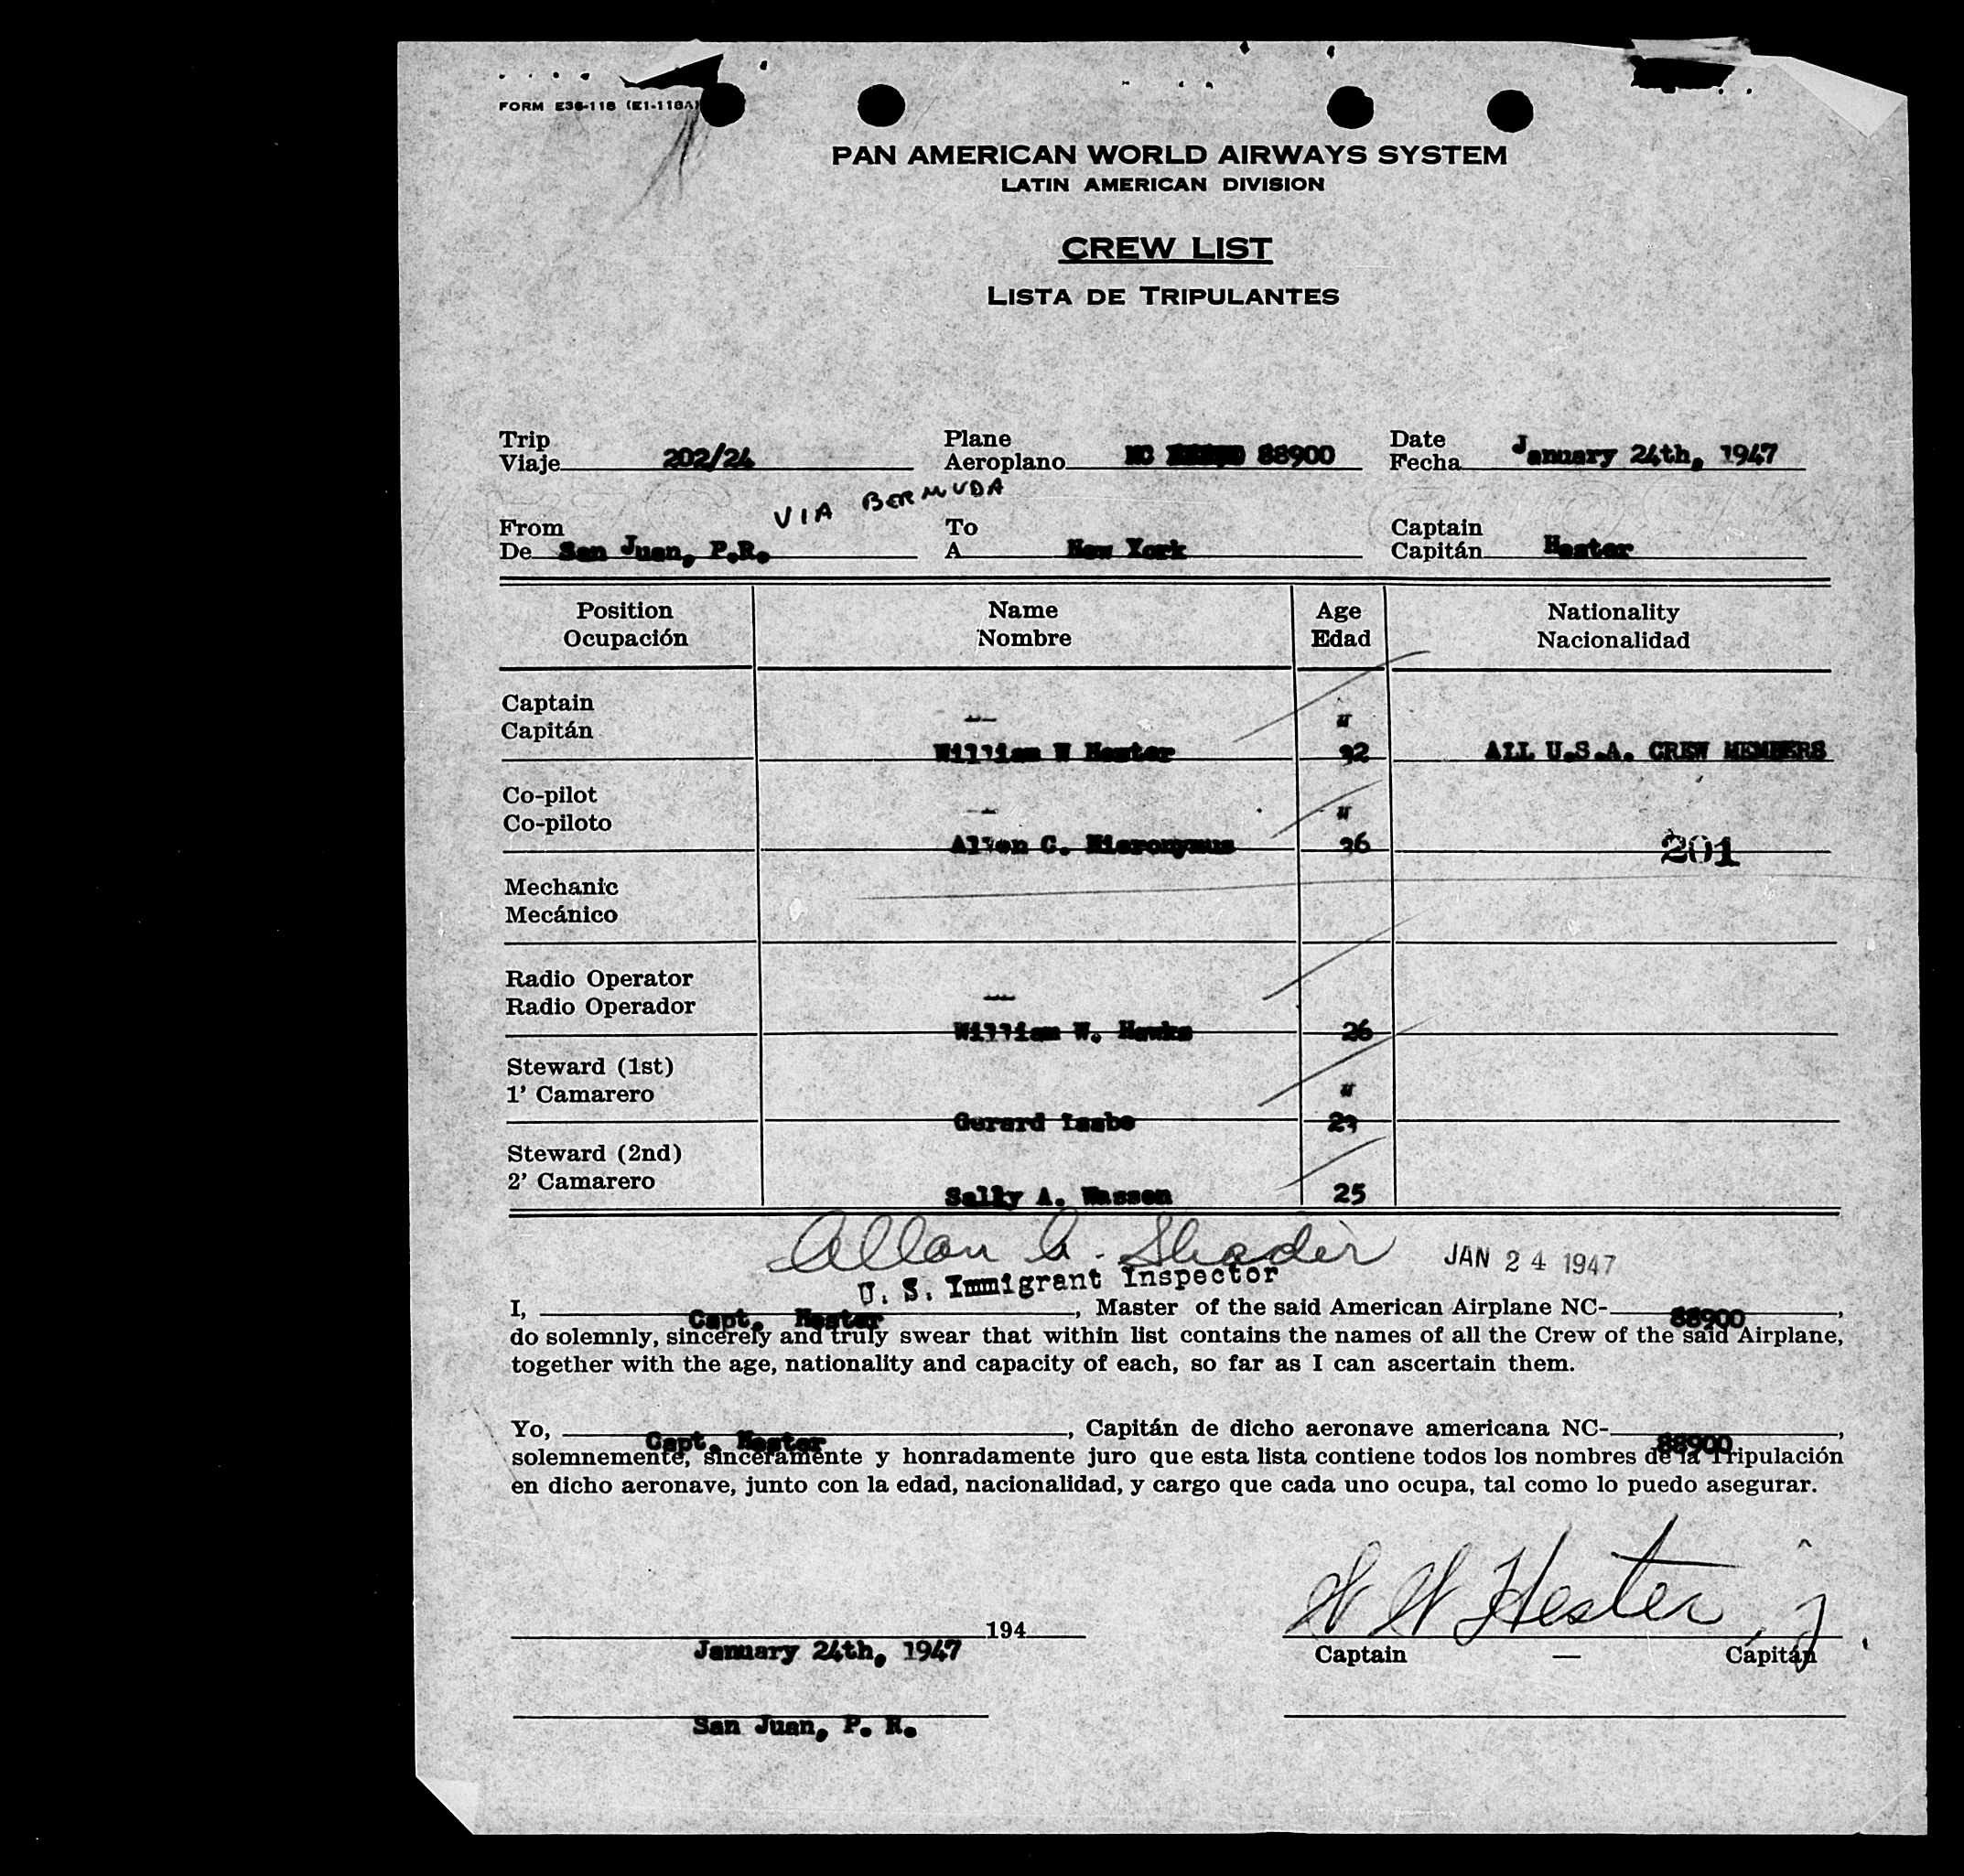 FORM E36-118 (E1-118A)
PAN AMERICAN WORLD AIRWAYS SYSTEM
LATIN AMERICAN DIVISION
CREW LIST
LISTA DE TRIPULANTES
Trip Plane Date
Viaje 202/24 Aeroplano NC 88900 Fecha January 24th, 1947
VIA BERMUDA
From To Captain
De San Juan, P.R. A New York Capitán Hester
Position Name Age Nationality
Ocupación Nombre Edad Nacionalidad
Captain
Capitán "
William W Hester 32 ALL U.S.A. CREW MEMBERS
Co-pilot
Co-piloto "
C. Hieronymus 26 201
Mechanic
Mecánico
Radio Operator
Radio Operador
William W. Hawks 26
Steward (1st)
1' Camarero "
Gerard 23
Steward (2nd)
2' Camarero
Sally A. Wasson 25
Allan G. Shader JAN 24 1947
U. S. Immigrant Inspector
I, Capt. Hester, Master of the said American Airplane NC-88900,
do solemnly, sincerely and truly swear that within list contains the names of all the Crew of the said Airplane,
together with the age, nationality and capacity of each, so far as I can ascertain them.
Yo, Capt. Hester, Capitán de dicho aeronave americana NC-88900,
solemnemente, sinceramente y honradamente juro que esta lista contiene todos los nombres de la Tripulación
en dicho aeronave, junto con la edad, nacionalidad, y cargo que cada uno ocupa, tal como lo puedo asegurar.
W W Hester, Jr.
194
January 24th, 1947 Captain — Capitán
San Juan, P. R.